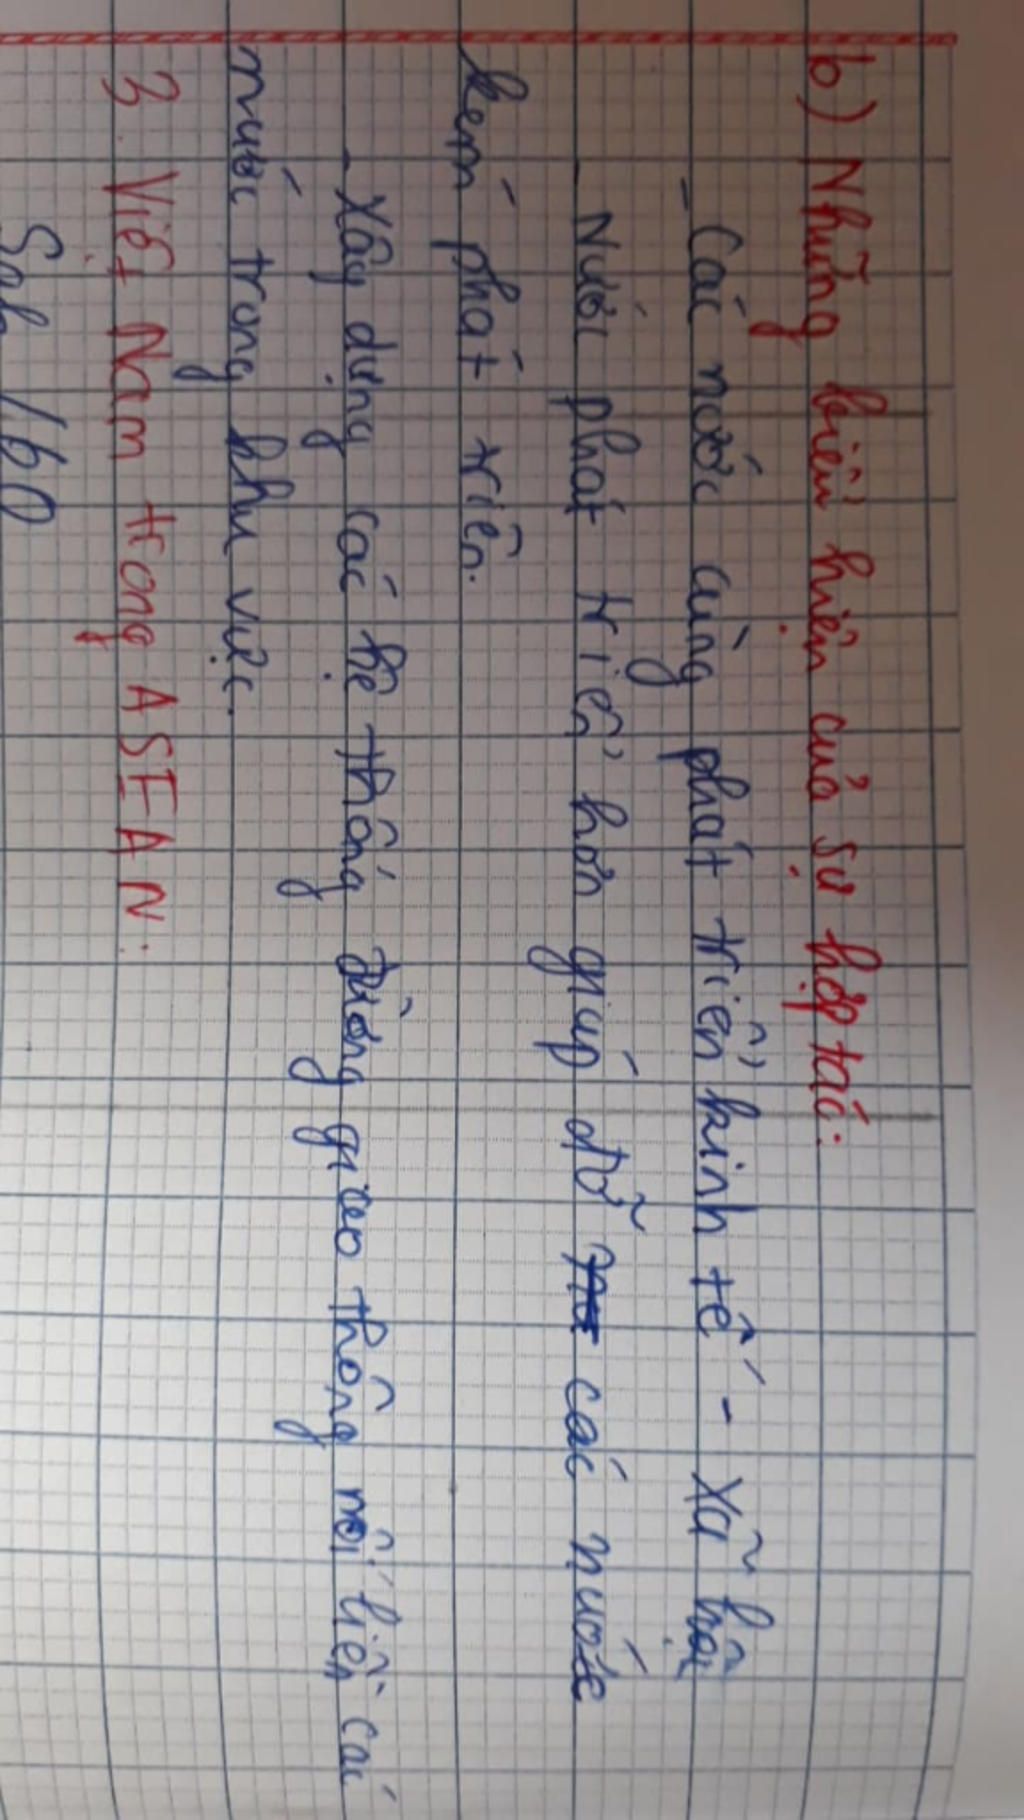 b) Những biểu hiện của sự hợp tác:
- Các nước cùng phát triển kinh tế - Xã hội
- Nước phát triển hơn giúp đỡ các nước
kém phát triển.
- Xây dựng các hệ thống đường giao thông nối liền các
nước trong khu vực.
3. Việt Nam trong ASEAN:
Sgk / 60